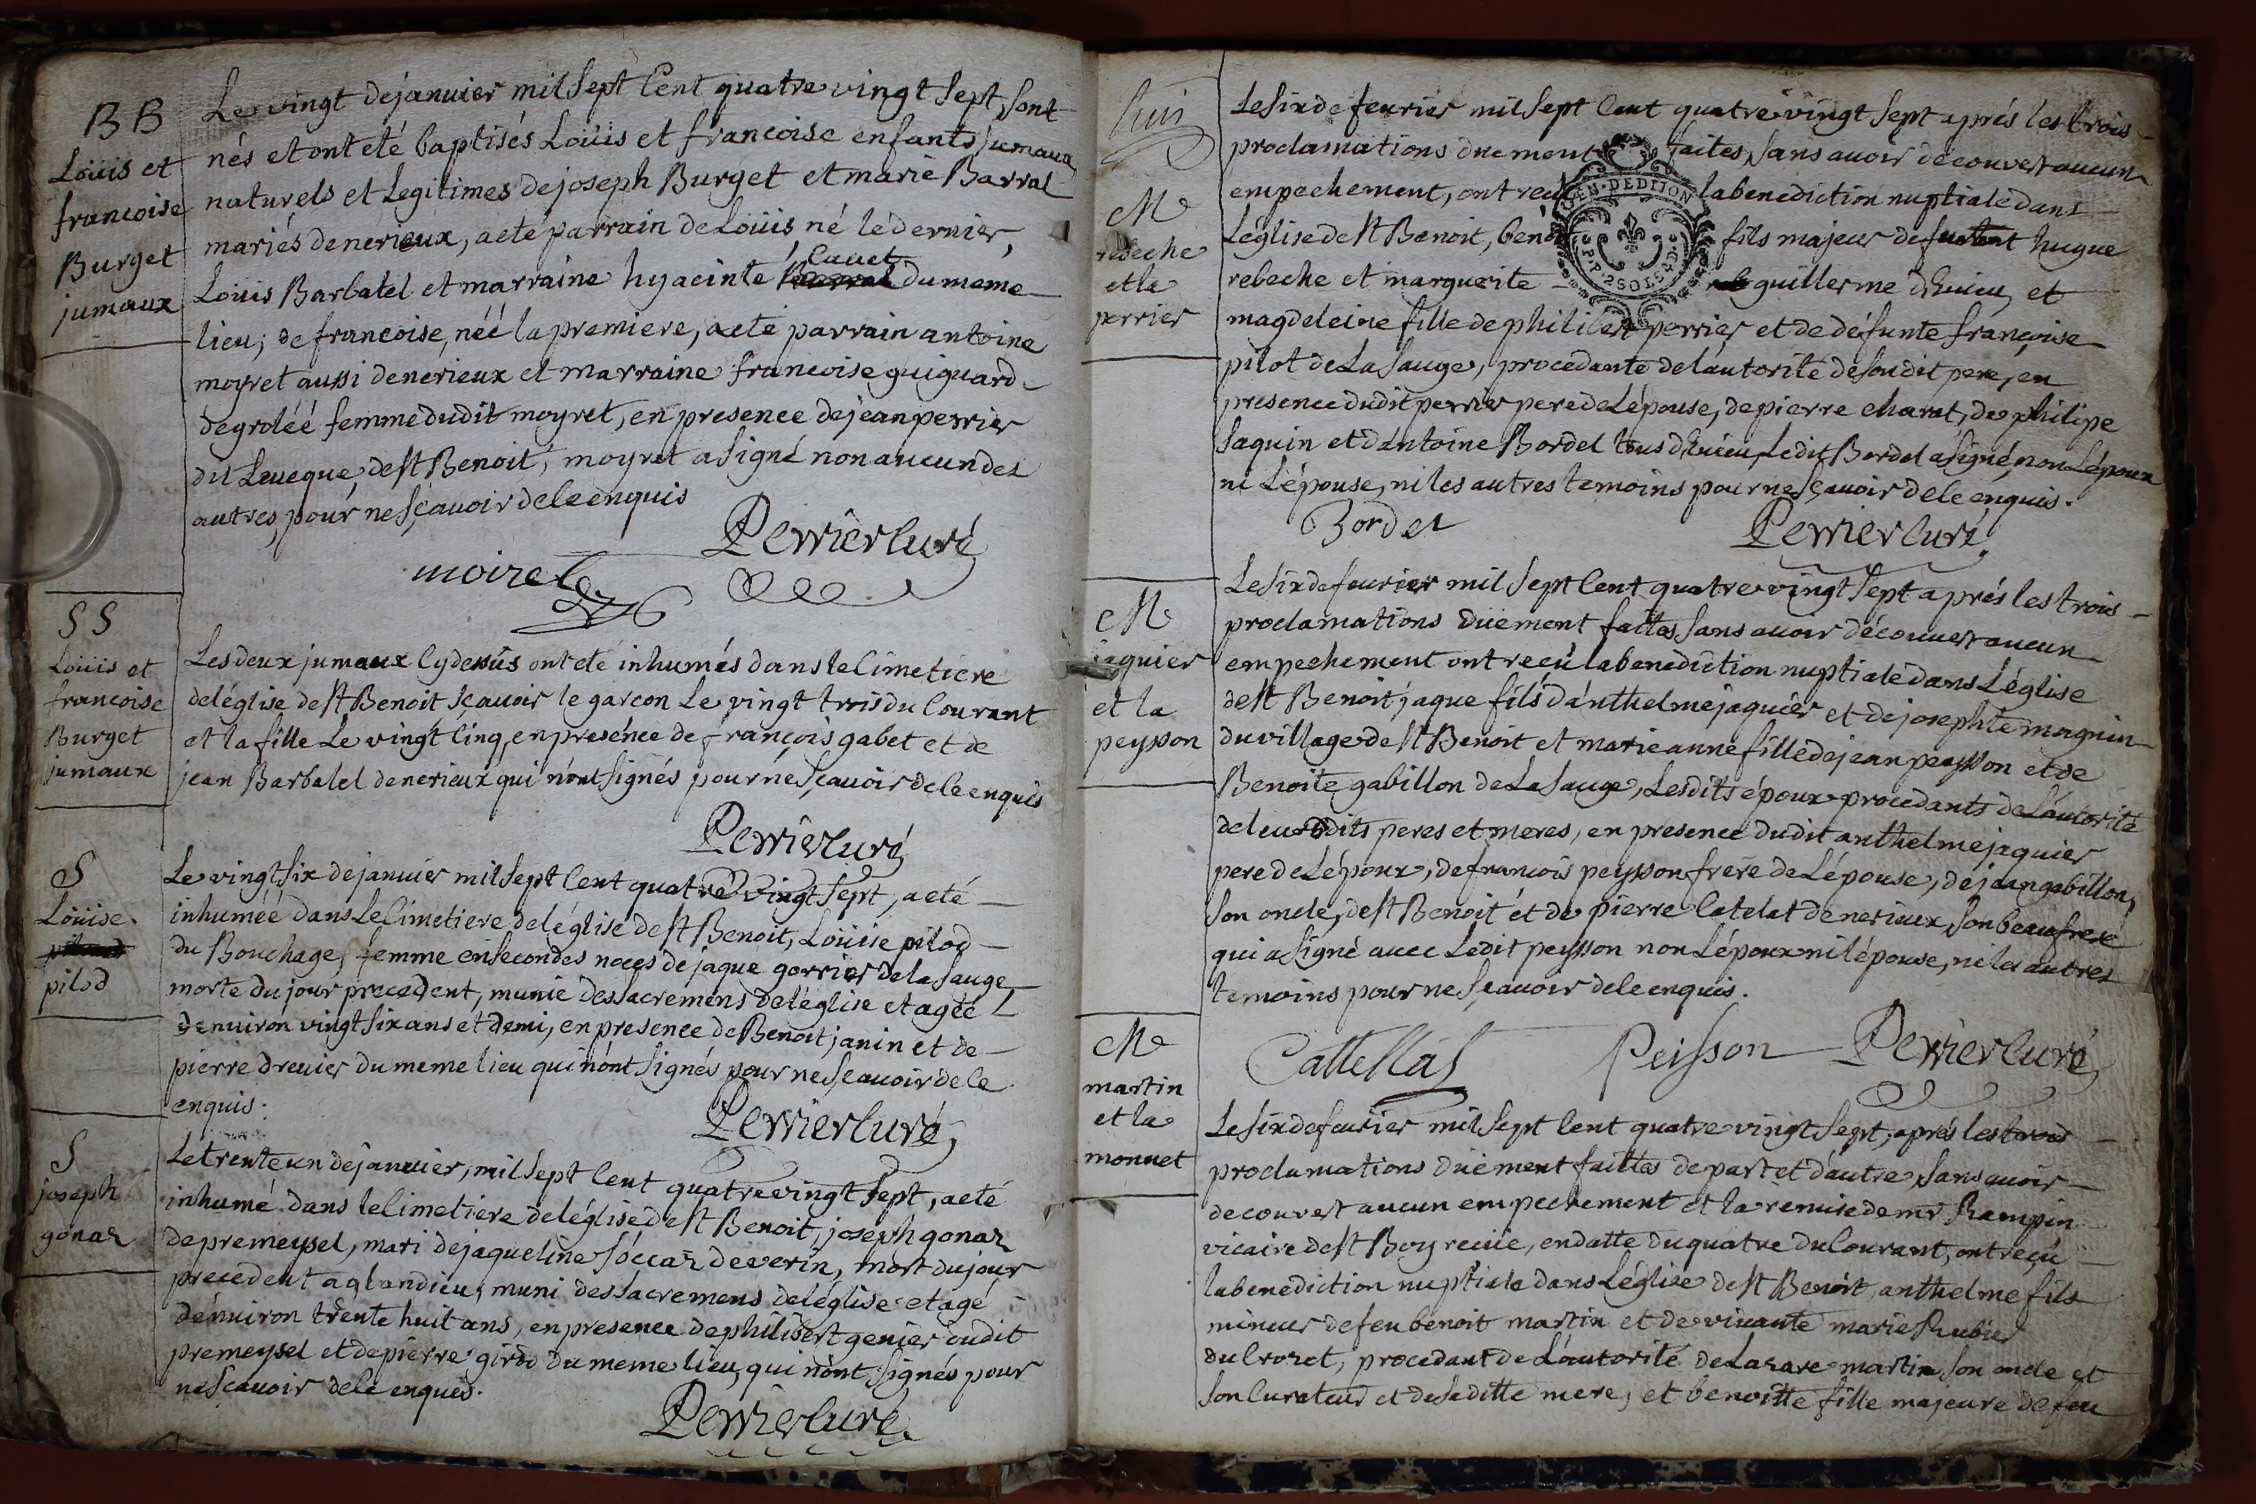 B B
Loüis et
francoise
Burget
jumaux
Le vingt de janvier mil sept Cent quatre vingt sept, sont
nés et ont eté baptisés Loüis et francoise enfants jumaux
naturels et Legitimes de joseph Burget et marie Barral
mariés de nerieux, a eté parrain de Loüis né le dernier,
Cuuet
Loüis Barbatel et marraine hyacinte du meme
lieu; de francoise, néé la premiere, a eté parrain antoine
moyret aussi de nerieux et marraine francoise guiguard
de groléé femme dudit moyret, en presence de jean perrier
dit Leveque, de st Benoit, moyret a signé non aucun des
autres, pour ne sçavoir de le enquis
moiret
Perrier Curé
S S
Loüis et
francoise
Burget
jumaux
Les deux jumaux Cydessus ont eté inhumés dans le Cimetiere
de léglise de st Benoit sçavoir le garcon Le vingt trois du Courant
et la fille Le vingt Cinq, en presénce de françois gabet et de
jean Barbatel de nerieux qui n'ont signés pour ne sçavoir de le enquis
Perrier Curé
S
Loüise
pilod
Le vingt six de janvier mil sept Cent quatre vingt sept, a eté
inhuméé dans Le Cimetiere de léglise de st Benoit, Loüise pilod
du Bouchage, femme en secondes noces de jaque gorrier de la sauge
morte du jour precedent, munie des sacremens de léglise et agéé
d'environ vingt six ans et demi, en presence de Benoit janin et de
pierre drevier du meme lieu qui n'ont signés pour ne sçavoir de le
enquis.
Perrier Curé
S
joseph
gonaz
Le trente un de janvier, mil sept Cent quatre vingt sept, a eté
inhumé dans le Cimetiere de léglise de st Benoit, joseph gonaz
de premeysel, mari de jaqueline soccaz de verin, mort du jour
precedent a glandieu, muni des sacremens de léglise et agé
d'environ trente huit ans, en presence de philibert genier dudit
premeysel et de pierre girod du meme lieu, qui n'ont signés pour
ne sçavoir de le enquis.
Perrier Curé
huit
M
rebeche
et la
perrier
Le six de fevrier mil sept Cent quatre vingt sept aprés les trois
proclamations duement faites, sans avoir découvert aucun
empechement, ont recu la benediction nuptiale dans
L'église de st Benoit, benoit fils majeur de hugue
rebeche et marguerite guillerme d'Evieu, et
magdeleine fille de philibert perrier et de défunte françoise
pilot de La sauge, procedante de l'autorité de sondit pere, en
presence dudit perrier pere de L'épouse, de pierre charat, de philipe
saquin et d'antoine Bordel tous d'Evieu, Ledit Bordel a signé, non L'époux
ni L'épouse, ni les autres temoins pour ne sçavoir de le enquis.
Bordel
Perrier Curé
GEN. DE DIJON
M
jaquier
et la
peysson
Le six de fevrier mil sept Cent quatre vingt sept aprés les trois
proclamations düement faittes sans avoir découvert aucun
empechement ont recü la benediction nuptiale dans L'église
de st Benoit jaque fils d'anthelme jaquier et de josephte magnin
du village de st Benoit et marie anne fille de jean peysson et de
Benoite gabillon de La sauge, Lesdits époux procedants de L'autorité
de leursdits peres et meres, en presence dudit anthelme jaquier
pere de L'époux, de francois peysson frere de L'épouse, de jean gabillon,
son oncle, de st Benoit et de pierre Catelat de nerieux, son beaufrere
qui a signé avec Ledit peysson non L'époux ni l'épouse, ni les autres
temoins pour ne sçavoir de le enquis.
Cattellat
Peisson
Perrier Curé
M
martin
et la
monnet
Le six de fevrier mil sept Cent quatre vingt sept, aprés les trois
proclamations düement faittes de part et d'autre sans avoir
decouvert aucun empechement et la remise de mr Rampin
vicaire de st Boy recüe, en datte du quatre du Courant, ont reçu
la benediction nuptiale dans L'église de st Benoit, anthelme fils
mineur de feu benoit martin et de vivante marie Rubier
du Crozet, procedant de L'autorité de Lazare martin son oncle et
son Curateur et de saditte mere, et benoitte fille majeure de feu